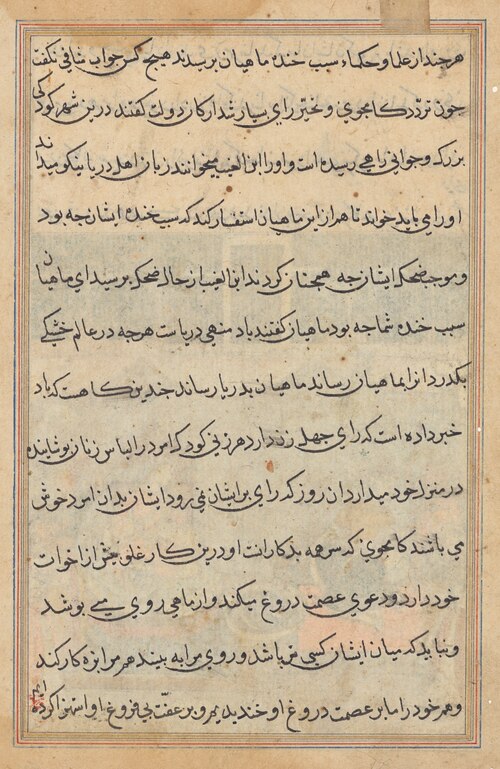 هرچند از علما و حکماء سبب خنده ماهیان پرسیدند هیچ کس جواب شافی نکفت
چون تردد کامجوی و تحیر رای بسیار شد ارکان دولت کفتند درین شهر کودکی
بزرک و جوانی راهبی رسیده است و او را ابن الغیب میخوانند زبان اهل دریا نیکو میداند
او را می باید خواند تا هم از این ماهیان استفسار کند که سبب خنده ایشان چه بود
و موجب ضحک ایشان چه همچنان کردند ابن الغیب از حال ضحک پرسید ای ماهیان
سبب خنده شما چه بود ماهیان کفتند باد منهی دریاست هرچه در عالم خشکی
بکدرد انرا بماهیان رساند ماهیان بدریا رساند چندین کاهست که باد
خبر داده است که رای چهل زن دارد هر زنی کودکی امرد را لباس زنان پوشانیده
در منزل خود میدارد ان روز که رای بر ایشان نمی رود ایشان بدان امرد خوش
می باشند کامجوی که سر همه بدکارانست او درین کار غلو بیش از اخوات
خود دارد و دعوی عصمت دروغ میکند و از ماهی روی می پوشد
و نباید که میان ایشان کسی نر باشد و روی مرا به بیند هم مرا بزه کار کند
و هم خود را ما بر عصمت دروغ او خندیدیم و بر عفت بی فروغ او استهزا کرده ایم